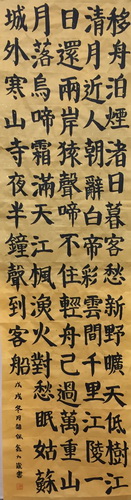 移舟泊煙渚日暮客愁新野曠天低樹江
清月近人朝辭白帝彩雲間千里江陵一
日還兩岸猿聲啼不住輕舟已過萬重山
月落烏啼霜滿天江楓漁火對愁眠姑蘇
城外寒山寺夜半鐘聲到客船
戊戌冬月